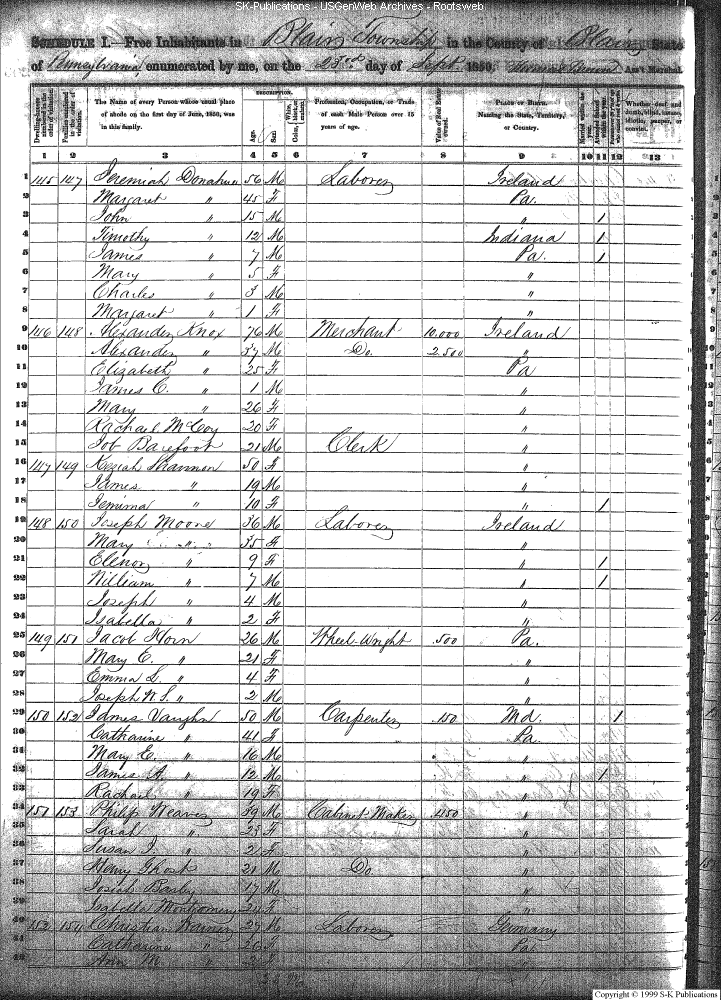 SK-Publications - USGenWeb Archives - Rootsweb
SCHEDULE I.—Free Inhabitants in Blair Township in the County of Blair State
of Pennsylvania enumerated by me, on the 23rd day of Sept. 1850. Ass't Marshal.
Dwelling-houses numbered in the order of visitation. Families numbered in the order of visitation. The Name of every Person whose usual place of abode on the first day of June, 1850, was in this family. DESCRIPTION. Age. Sex. Color, White, black, or mulatto. Profession, Occupation, or Trade of each Male Person over 15 years of age. Value of Real Estate owned. PLACE OF BIRTH. Naming the State, Territory, or Country. Married within the year. Attended School within the year. Whether deaf and dumb, blind, insane, idiotic, pauper, or convict.
1 2 3 4 5 6 7 8 9 10 11 12 13
1 145 147 Jeremiah Donahue 56 M Laborer Ireland
2 Margaret " 45 F Pa.
3 John " 15 M " 1
4 Timothy " 12 M Indiana 1
5 James " 7 M Pa. 1
6 Mary " 5 F "
7 Charles " 3 M "
8 Margaret " 1 F "
9 146 148 Alexander Knox 76 M Merchant 10,000 Ireland
10 Alexander " 37 M Do. 2.500 "
11 Elizabeth " 25 F Pa
12 James C. " 1 M "
13 Mary " 26 F "
14 Rachael McCoy 20 F "
15 Job Barefoot 21 M Clerk "
16 147 149 Keziah Shannon 50 F "
17 James " 19 M "
18 Jemima " 10 F " 1
19 148 150 Joseph Moore 36 M Laborer Ireland
20 Mary " 35 F "
21 Elenor " 9 F " 1
22 William " 7 M " 1
23 Joseph " 4 M "
24 Isabella " 2 F "
25 149 151 Jacob Horn 26 M Wheel-Wright .500 Pa.
26 Mary E. " 21 F "
27 Emma L. " 4 F "
28 Joseph W. S. " 2 M "
29 150 152 James Vaughn 50 M Carpenter .150 Md. 1
30 Catharine " 41 F Pa.
31 Mary E. " 16 M "
32 James A. " 12 M " 1
33 Rachael " 19 F "
34 151 153 Philip Weaver 39 M Cabinet-Maker "
35 Sarah " 23 F "
36 Susan J. " 2 F "
37 Henry Ghost 21 M Do "
38 Josiah 17 M "
39 Isabella Montgomery F "
40 152 154 Christian 29 M Laborer Germany
41 Catharine " 26 F Pa
42 Ann M. " 2 F "
Copyright © 1999 S-K Publications